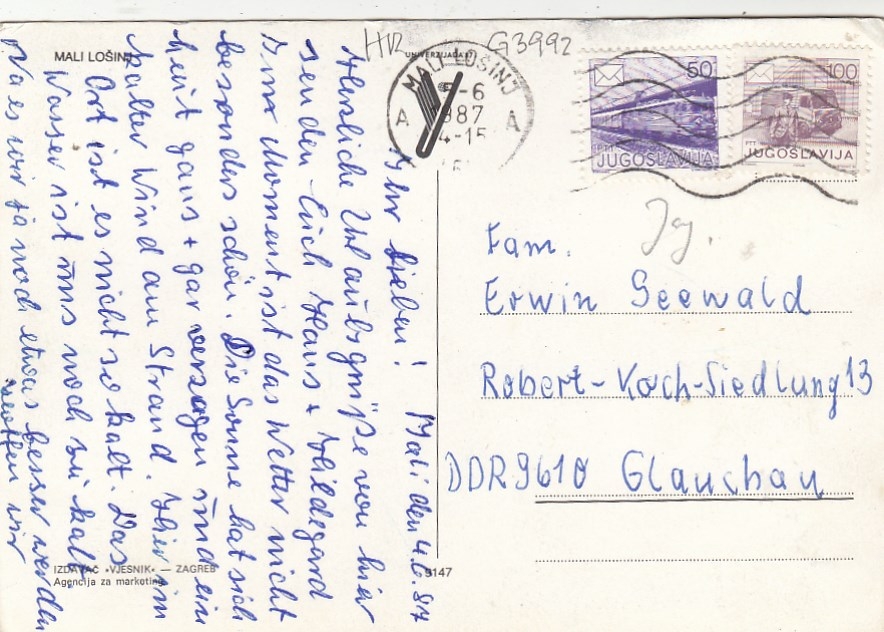 MALI LOŠINJ
HR G3992
UNIVERZIJADA '87
MALI LOŠINJ
-6
1987
4-15
A A
50
PTT
JUGOSLAVIJA
100
PTT
JUGOSLAVIJA
Jg.
Fam.
Erwin Seewald
Robert-Koch-Siedlung 13
DDR 9610 Glauchau
Mali den 4.6.87
Ihr Lieben!
Herzliche Urlaubsgrüße von hier
senden Euch Hans + Hildegard
Im Moment ist das Wetter nicht
besonders schön. Die Sonne hat sich
heut ganz + gar verzogen und ein
kalter Wind am Strand. Hier im
Ort ist es nicht so kalt. Das
Wasser ist uns noch zu kalt
Na es wir ja noch etwas besser werden
hoffen wir
IZDAVAČ «VJESNIK» — ZAGREB
Agencija za marketing
9147